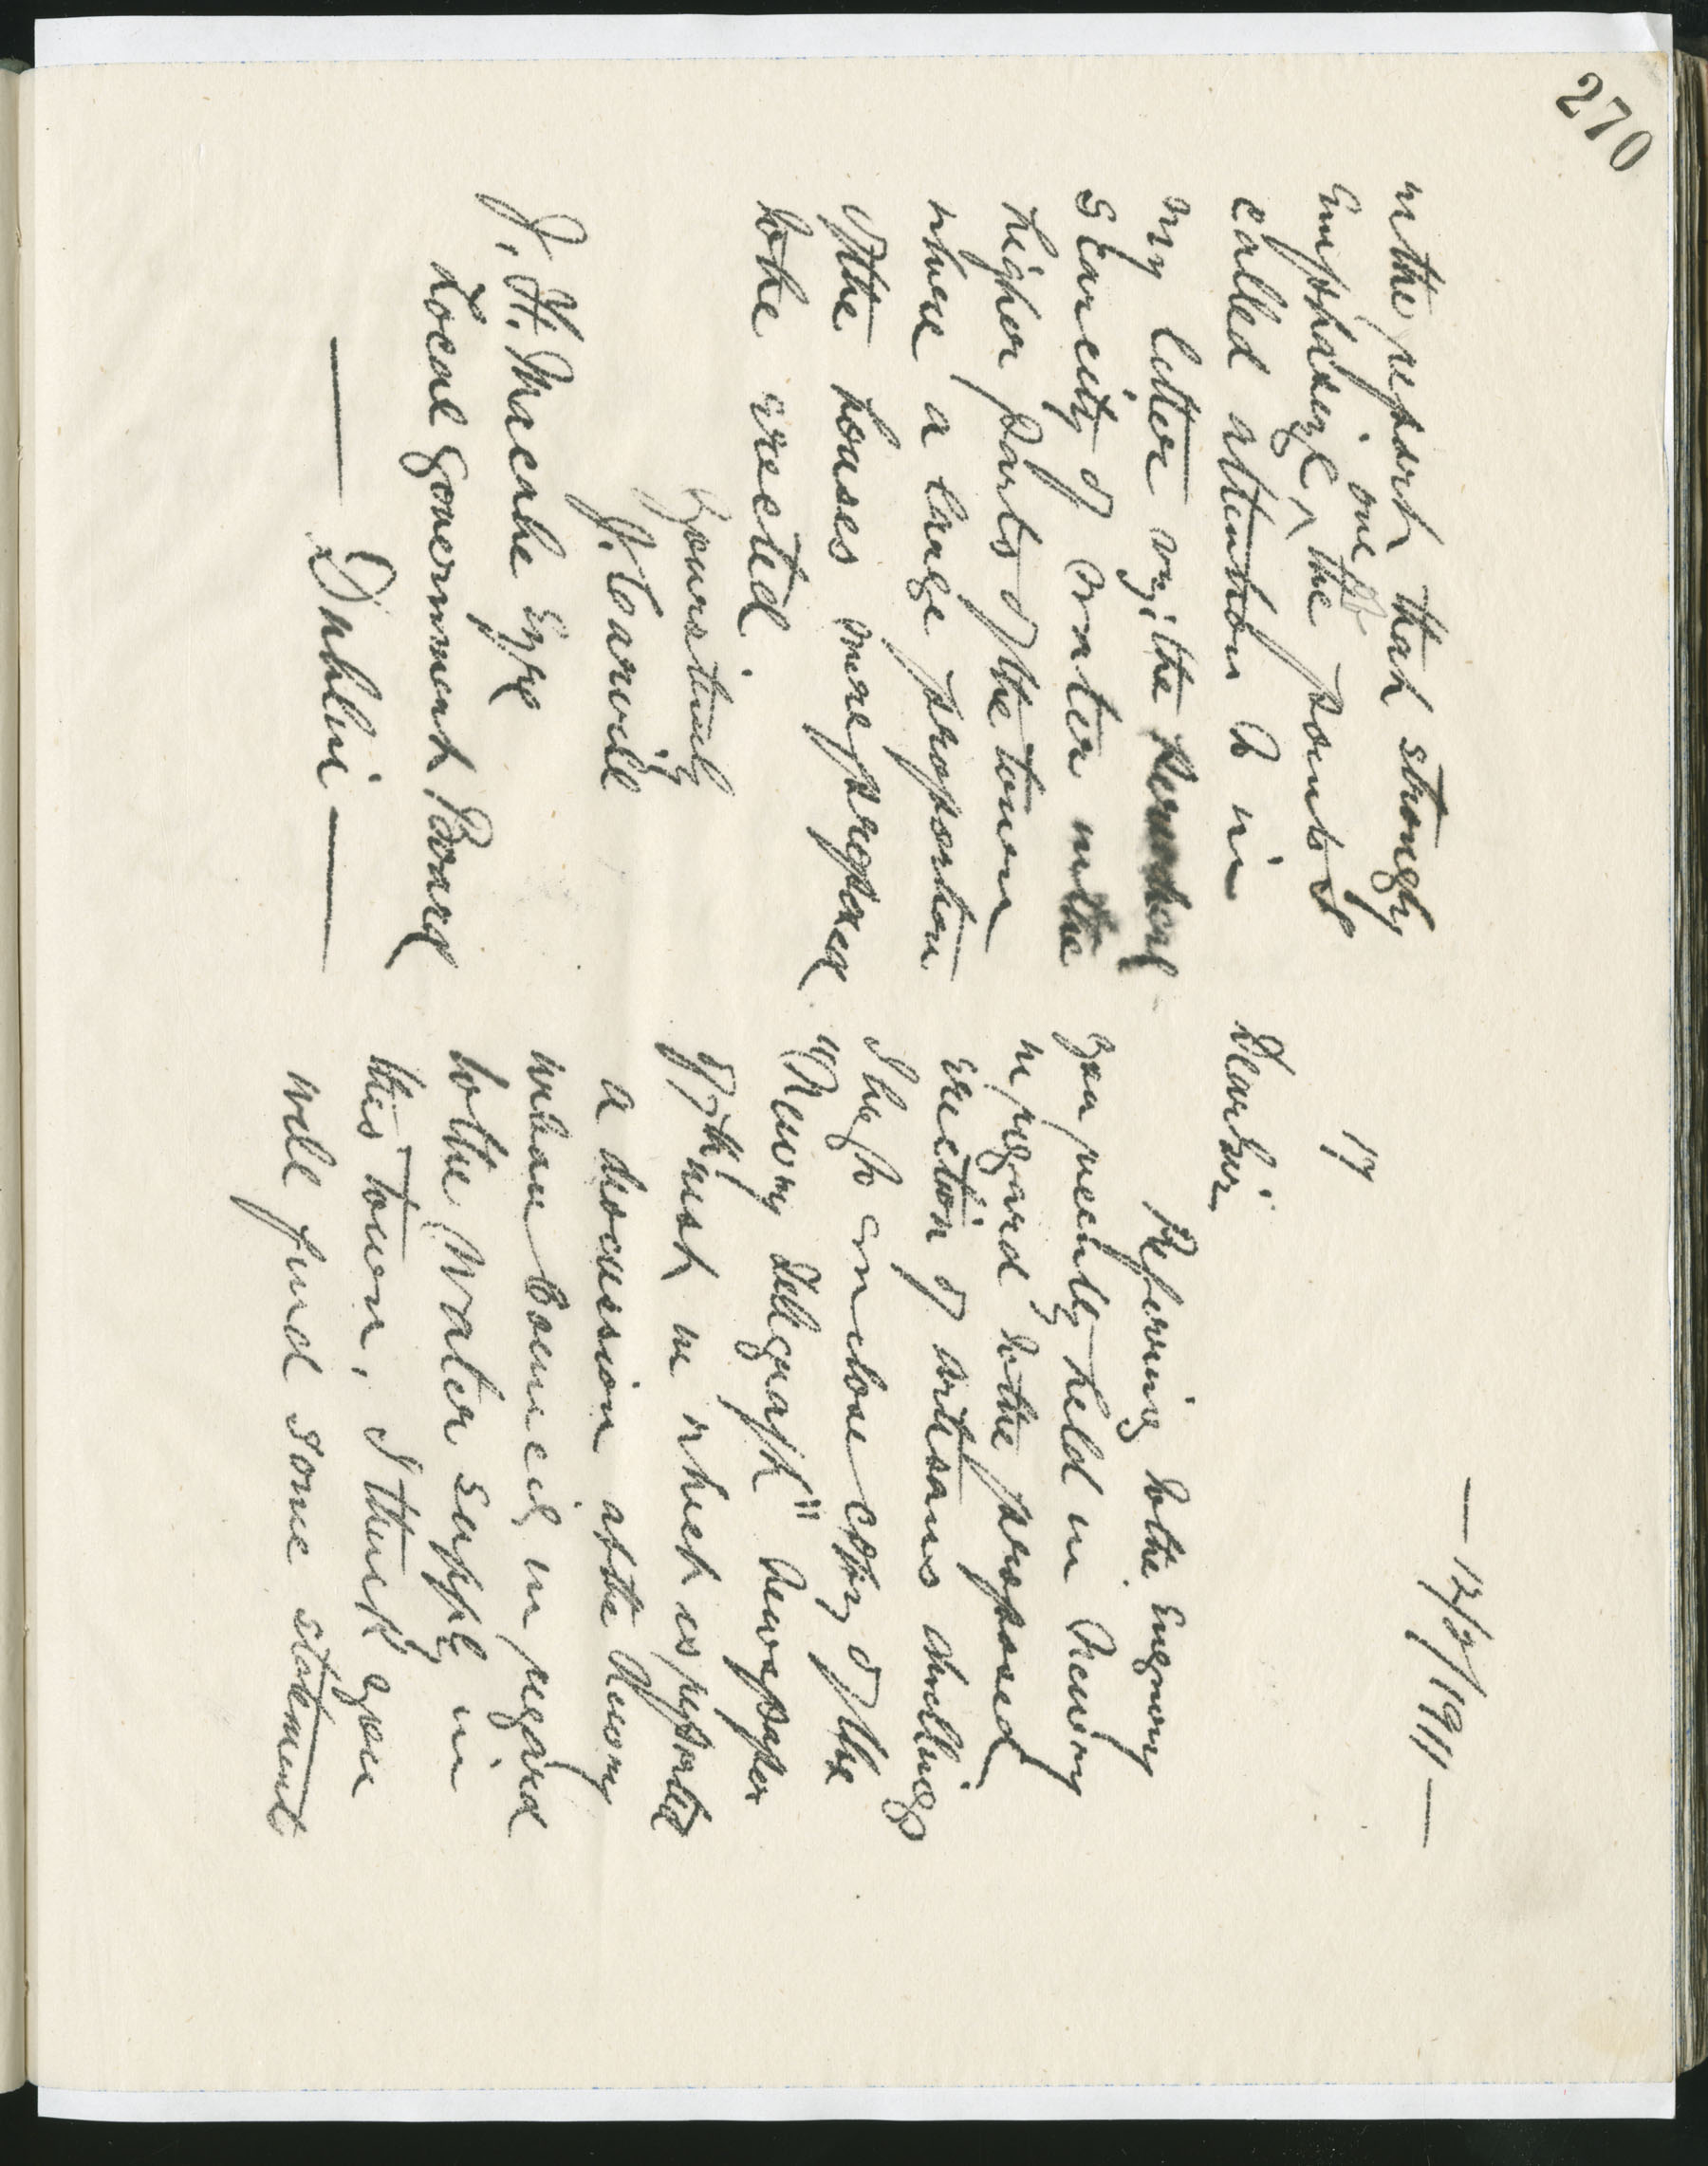 270
— 12/9/1911 —
17
Dear Sir,
Referring to the Enquiry
you recently held in Newry
in regard to the proposed
erection of artisans dwellings
I beg to enclose copy of the
"Newry Telegraph" Newspaper
of inst in which is reported
a discussion at the Newry
urban Council in regard
to the Water supply in
this town, I think you
will find some statement
in the report that strongly
Emphasize one of the points I
called attention to in
my letter viz: the
scarcity of water in the
higher parts of the town
where a large proportion
of the houses were proposed
to be erected
Yours truly
J. Carvill
J. H. McCabe Esqr
Local Government Board
— Dublin —